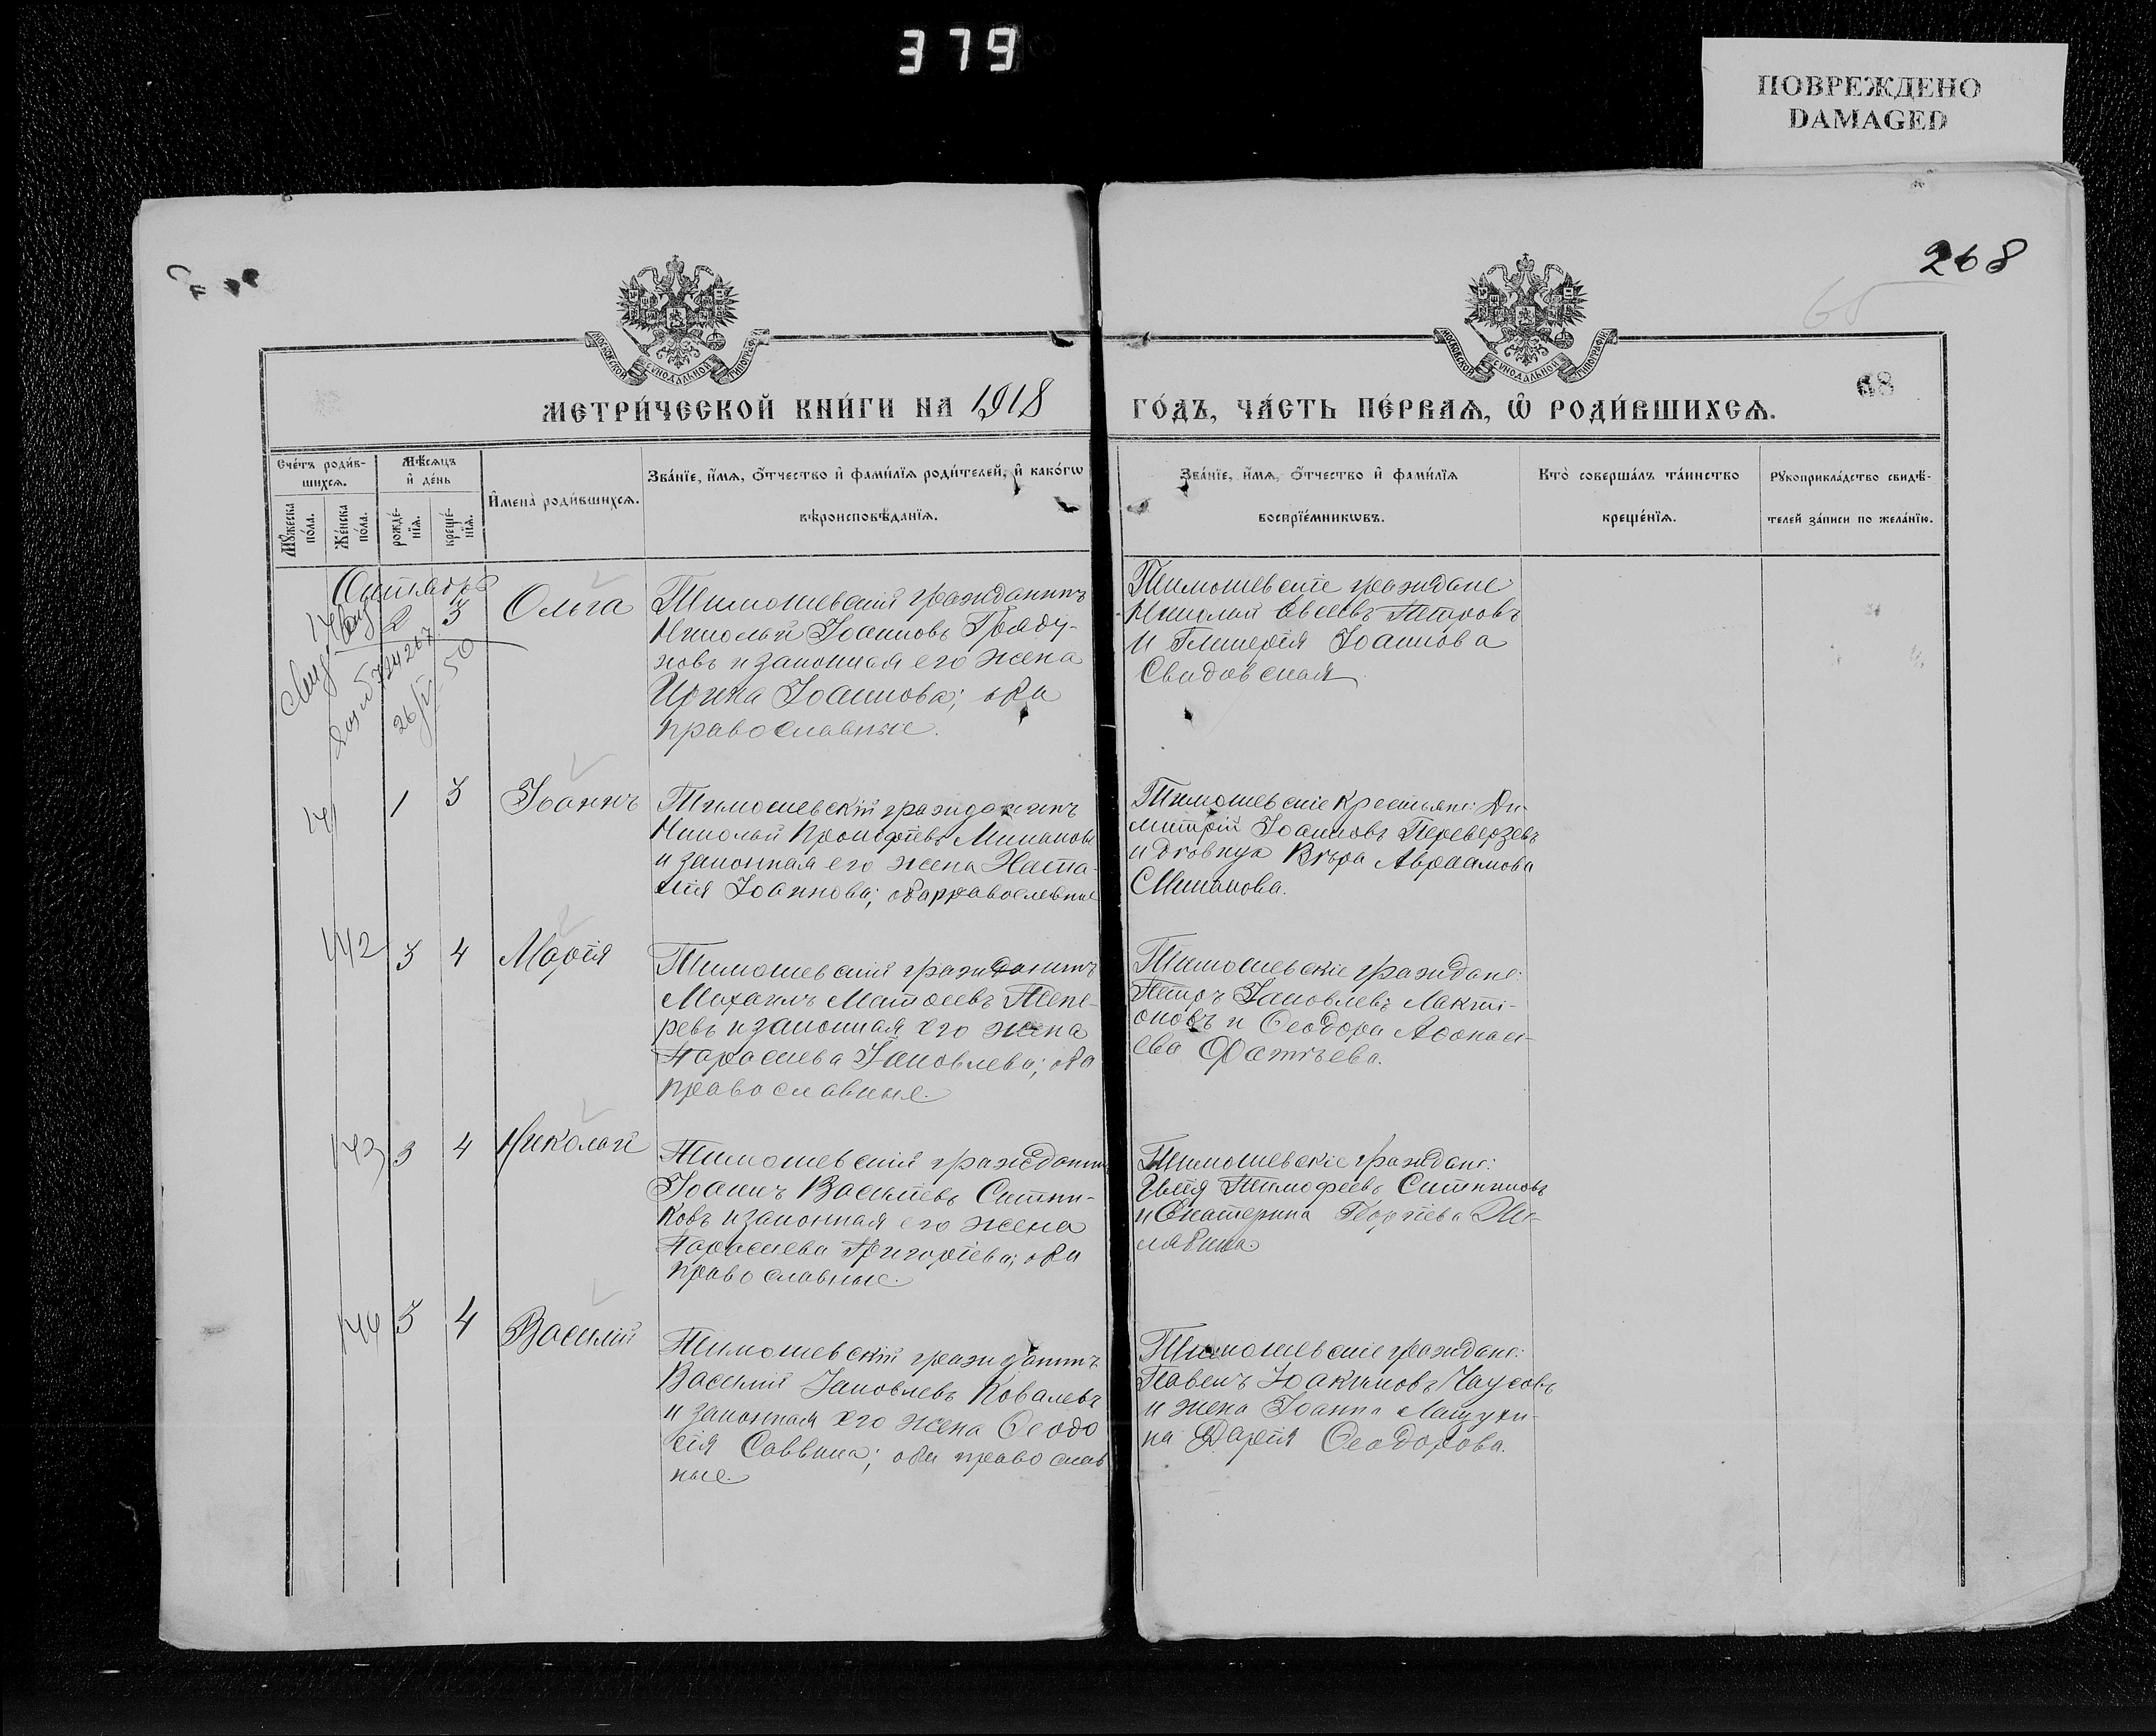 379
ПОВРЕЖДЕНО
DAMAGED
268
68
МОСКОВСКОЙ СѴНОДАЛЬНОЙ ТИПОГРАФІИ
МОСКОВСКОЙ СѴНОДАЛЬНОЙ ТИПОГРАФІИ
МЕТРИ́ЧЕСКОЙ КНИ́ГИ НА 1918
ГО́ДЪ, ЧА́СТЬ ПЕ́РВАѦ, Ѽ РОДИ́ВШИХСѦ.
Сче́тъ роди́в-
шихсѧ.
Мꙋ́жеска по́ла.
Же́нска по́ла.
Мѣ́сѧцъ
и҆ де́нь
рожде́-
нїѧ.
креще́-
нїѧ.
И҆мена̀ роди́вшихсѧ.
Зва́нїе, и҆́мѧ, ѻ҆́тчество и҆ фами́лїѧ роди́телей, и҆ како́гѡ
вѣроисповѣ́данїѧ.
Зва́нїе, и҆́мѧ, ѻ҆́тчество и҆ фами́лїѧ
воспрїе́мникѡвъ.
Кто̀ соверша́лъ та́инство
креще́нїѧ.
Рꙋкоприкла́дство свидѣ́-
телей за́писи по жела́нїю.
2 3 Ольга
Тимошевскій гражданинъ
Николай Іоанновъ Гряду-
новъ и законная его жена
Ирина Іоаннова; оба
православные.
Тимошевскіе граждане
Николай Евсеевъ Петровъ
и Гликерія Іоаннова
Свидовская
141 1 3 Іоаннъ
Тимошевскій гражданинъ
Николай Прокофіевъ Минаковъ
и законная его жена Ната-
лія Іоаннова; оба православные
Тимошевскіе крестьяне: Ди-
митрій Іоанновъ Переверзевъ
и дѣвица Вѣра Авраамова
Минакова.
142 3 4 Марія
Тимошевскій гражданинъ
Михаилъ Матѳеевъ Пепе-
ревъ и законная его жена
Параскева Іаковлева; оба
православные.
Тимошевскіе граждане:
Петръ Іаковлевъ Лакті-
оновъ и Ѳеодора Аѳонаси-
ева Фатѣева.
143 3 4 Николай
Тимошевскій гражданинъ
Іоаннъ Василіевъ Ситни-
ковъ и законная его жена
Параскева Григоріева; оба
православные.
Тимошевскіе граждане:
Илія Тимофеевъ Ситниковъ
и Екатерина Георгіева
144 3 4 Василій
Тимошевскій гражданинъ
Василій Іаковлевъ Ковалевъ
и законная его жена Ѳеодо
сія Саввина; оба православ
ные.
Тимошевскіе граждане:
Павелъ Іоакимовъ Чаусовъ
и жена Іоанна
на Дарія Ѳеодорова.